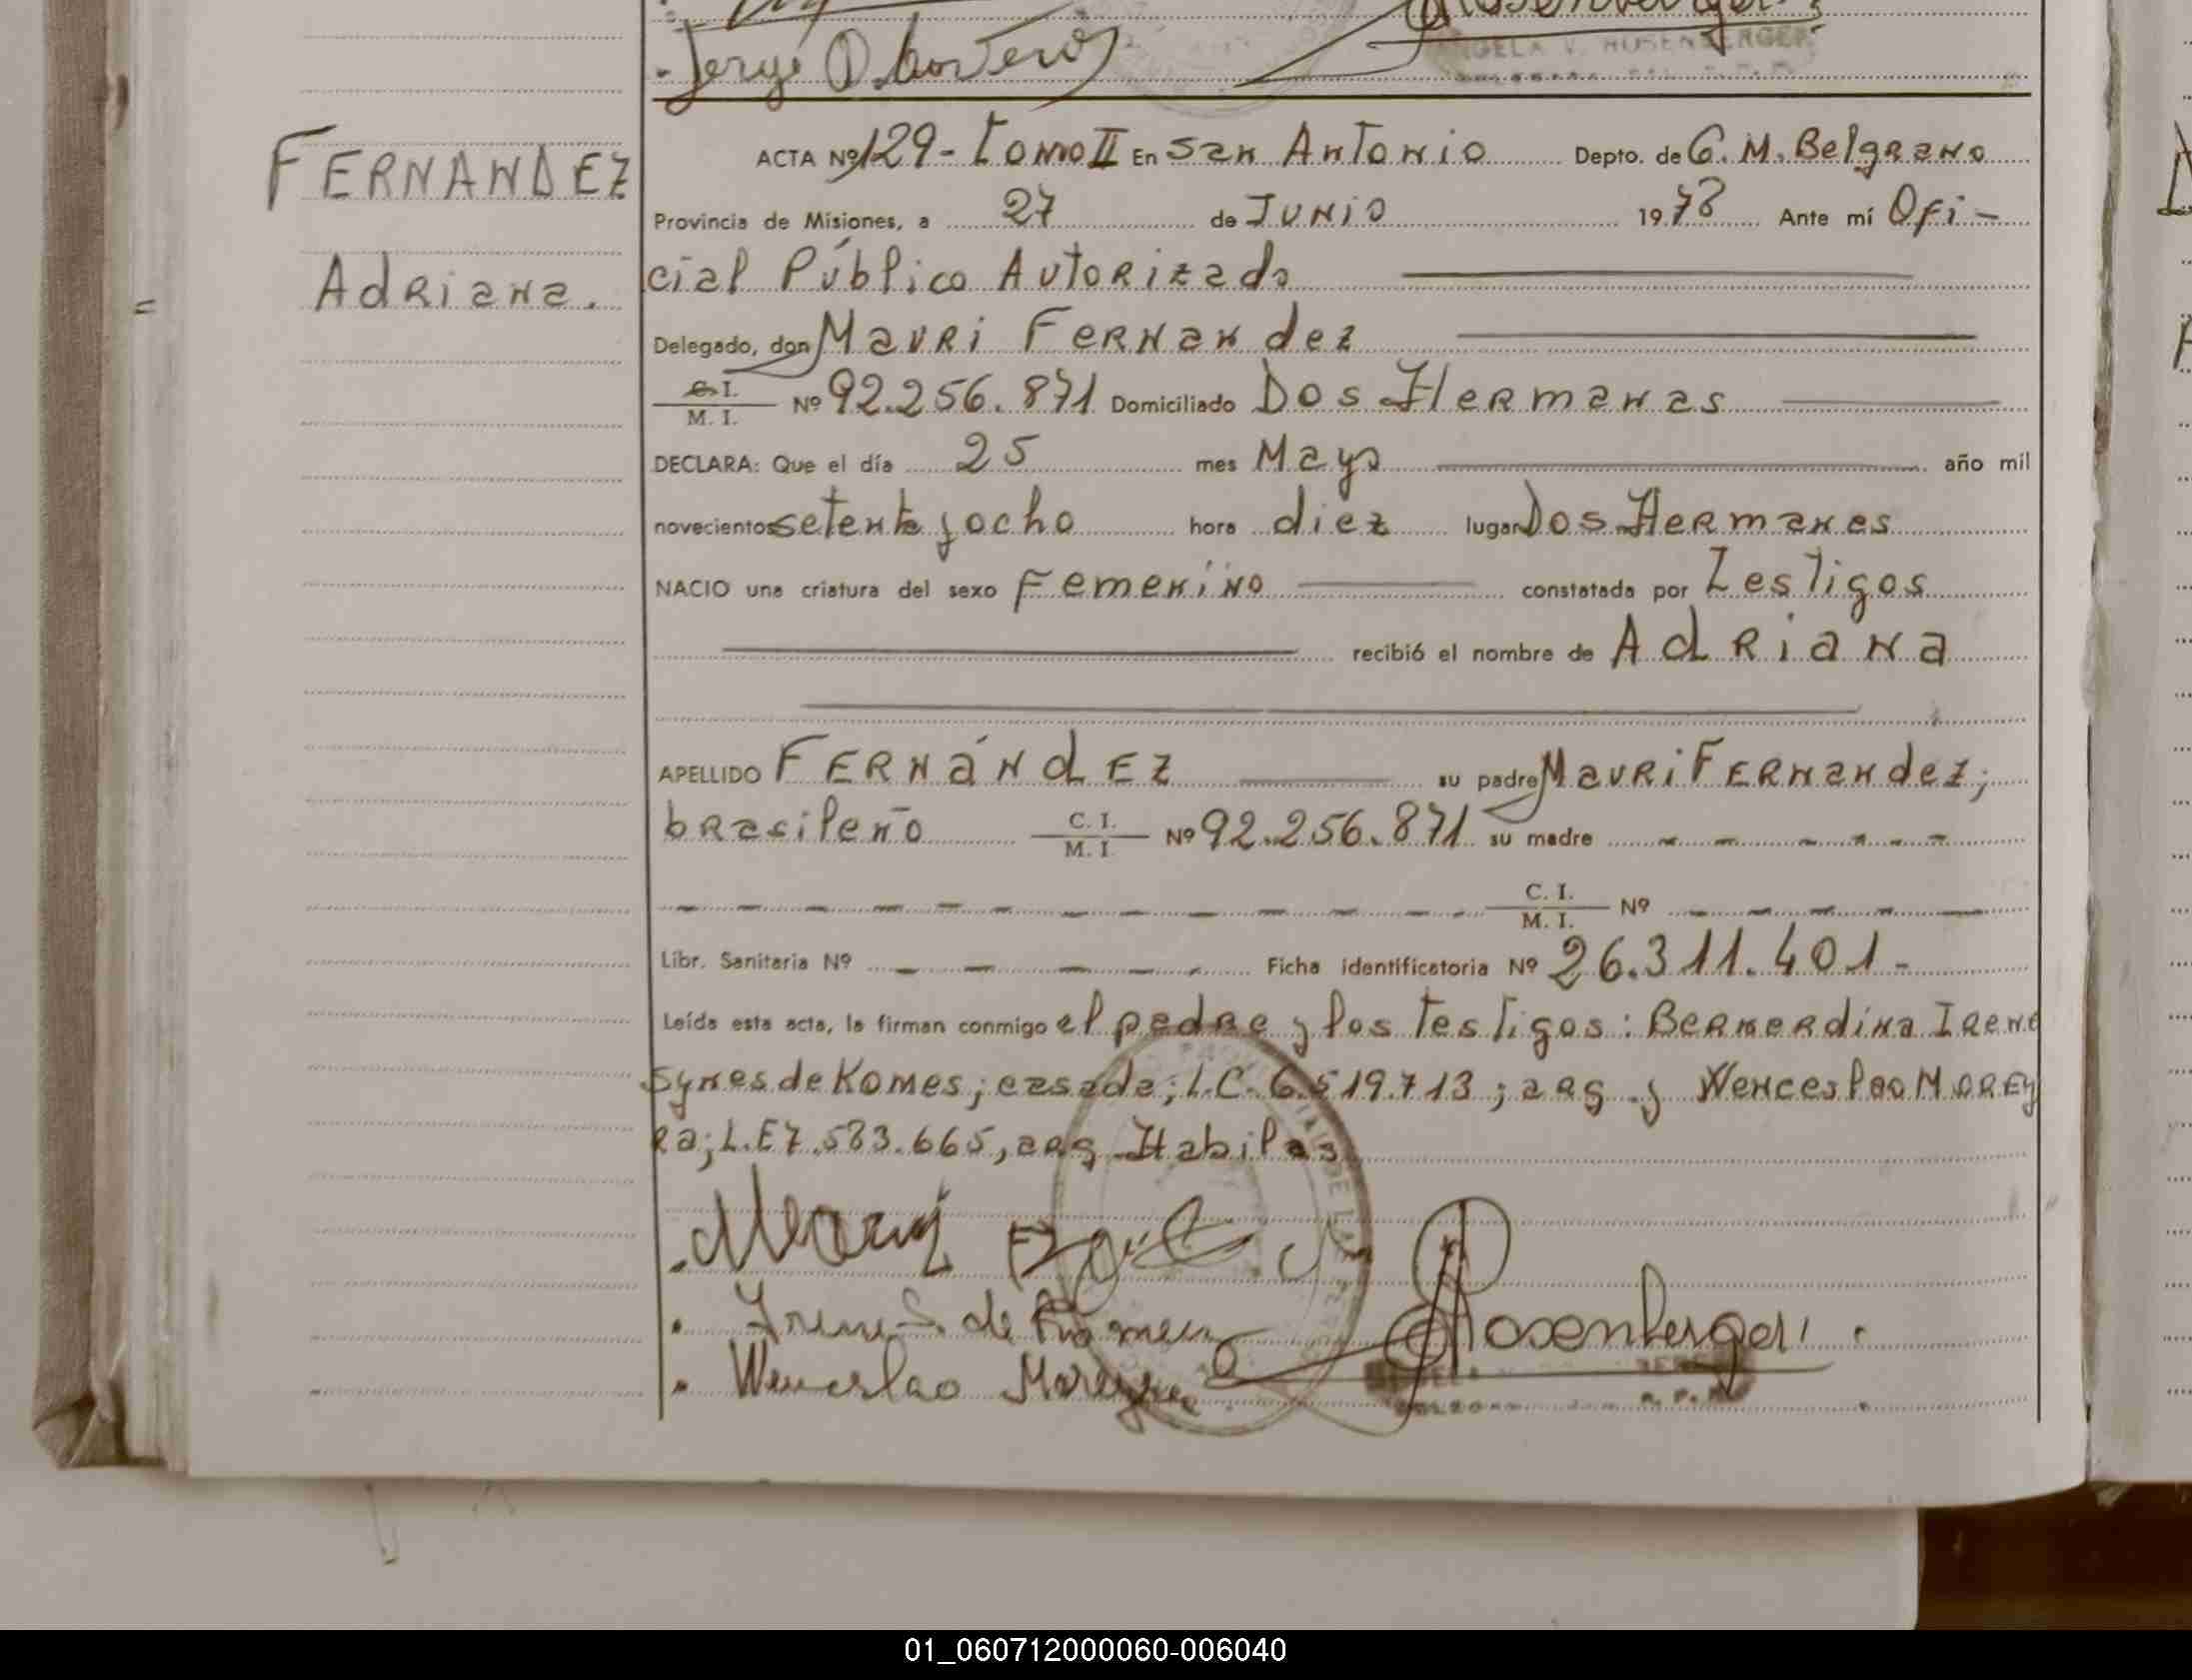 Jorge
ANGELA V. ROSENBERGER
FERNANDEZ
Adriana.
ACTA Nº 129- Tomo II En San Antonio Depto. de G. M. Belgrano
Provincia de Misiones, a 27 de Junio 1978 Ante mí Ofi-
cial Público Autorizado
Delegado, don Mauri Fernandez
C. I.
M. I. Nº 92.256.871 Domiciliado Dos Hermanas
DECLARA: Que el día 25 mes Mayo año mil
novecientos setenta y ocho hora diez lugar Dos Hermanas
NACIO una criatura del sexo Femenino constatada por Testigos
recibió el nombre de Adriana
APELLIDO FERNÁNdEZ su padre Mauri FERNandez;
brasileño C. I.
M. I. Nº 92.256.871 su madre
C. I.
M. I. Nº
Libr. Sanitaria Nº Ficha identificatoria Nº 26.311.401-
Leída esta acta, la firman conmigo el padre y los testigos: Bernardina Irene
Synes de Komes; casada; L.C. 6.519.713; arg. y Wenceslao MOREY
Ra; L.E 7.583.665, arg. Habiles
Irene S. de
Rosenberger
Wenceslao Moreyra
01_060712000060-006040